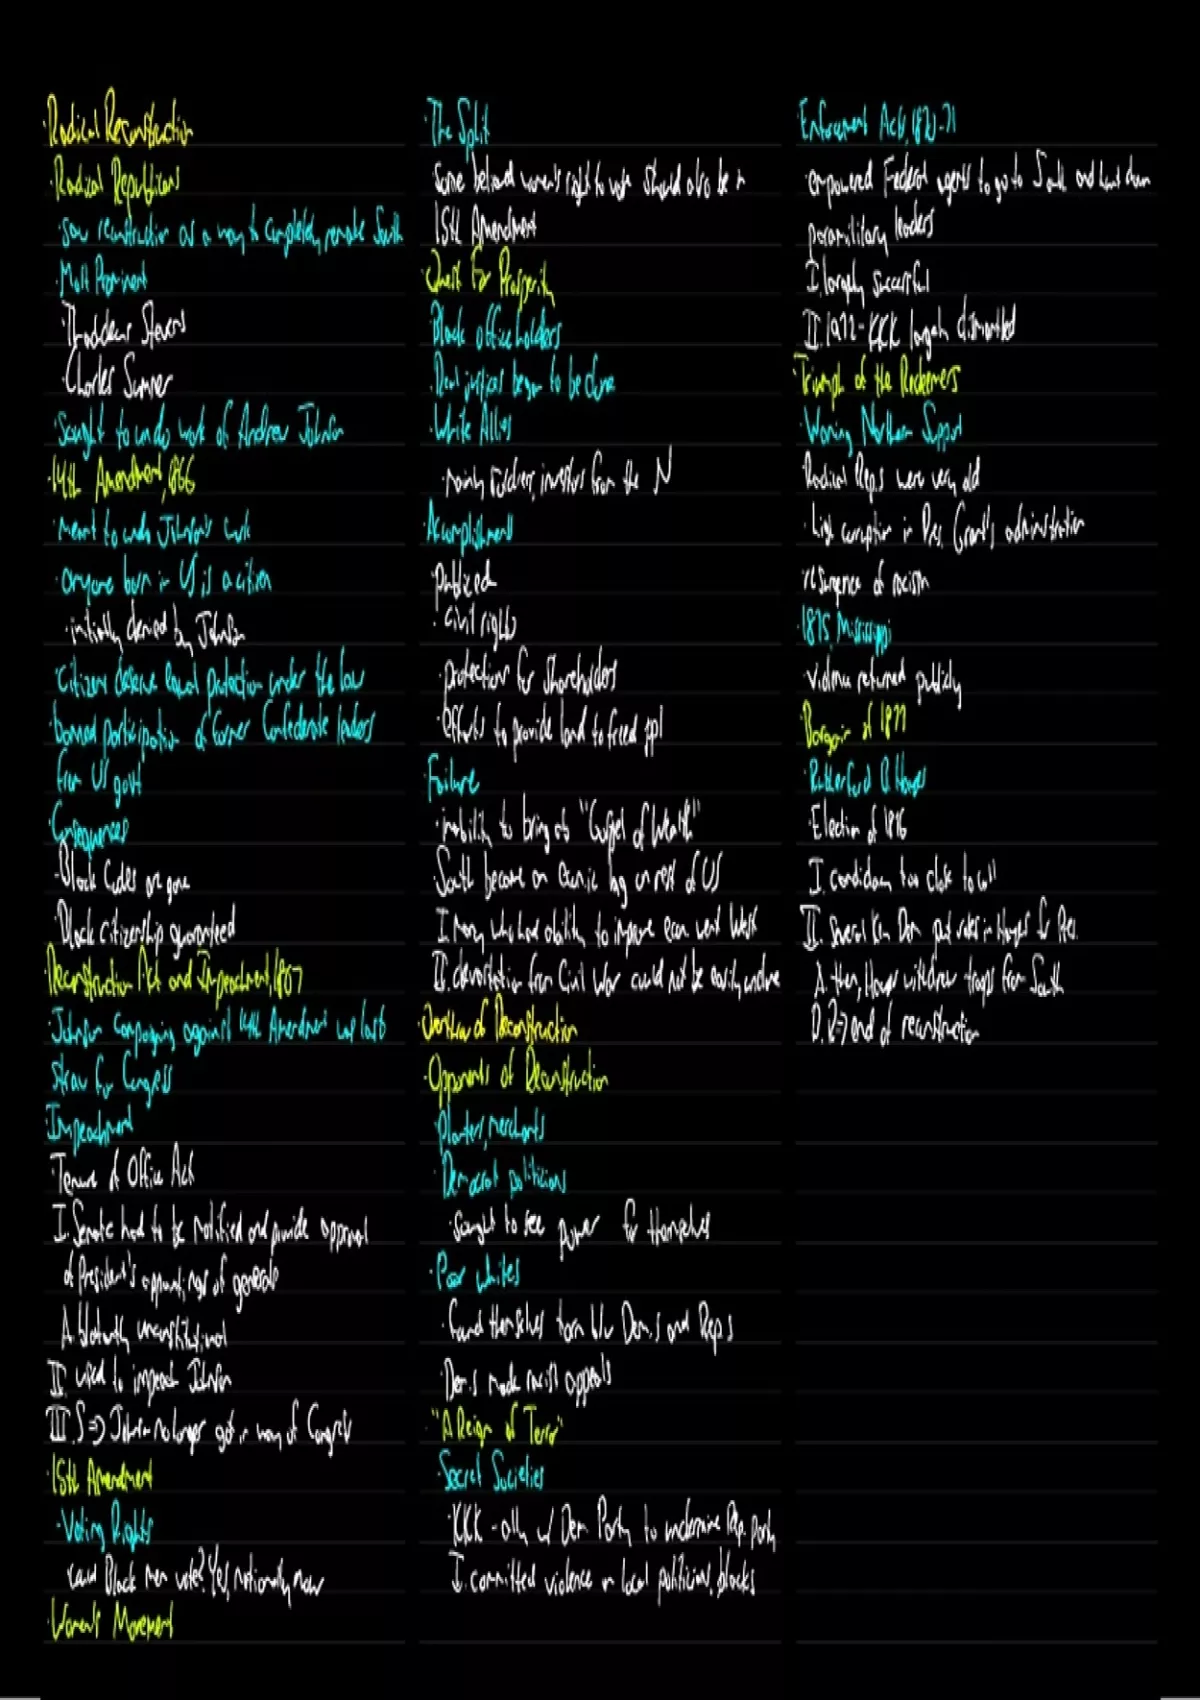 ·Radical Reconstruction
·Radical Republicans
·saw reconstruction as a way to completely remake South
·Most Prominent
·Thaddeus Stevens
·Charles Sumner
·sought to undo work of Andrew Johnson
·14th Amendment, 1866
·meant to undo Johnson's work
·anyone born in US is a citizen
·initially denied by Johnson
·citizens deserve equal protection under the law
·banned participation of former Confederate leaders
from US govt
·Consequences
·Black Codes are gone
·Black citizenship guaranteed
·Reconstruction Act and Impeachment, 1867
·Johnson campaigning against 14th Amendment
for Congress
·Impeachment
·Tenure of Office Act
I. Senate had to be notified and provide approval
of President's of generals
A. blatantly unconstitutional
II. used to impeach Johnson
III. S=> Johnson no longer got in way of Congress
·15th Amendment
·Voting Rights
·could Black men vote? Yes, nationally now
·Women's Movement
·The Split
·some believed women's right to vote should also be in
15th Amendment
·Quest for Prosperity
·Black officeholders
·Real justice began to be done
·White Allies
·mainly soldiers, investors from the N
·Accomplishments
·publiced
·civil rights
·protections for shareholders
·efforts to provide land to freed ppl
·Failure
·inability to bring ab "Gospel of Wealth"
·South became an econ.ic on rest of US
I. many who had ability to improve econ. went West
II. devastation from Civil War could not be easily undone
·Overthrow of Reconstruction
·Opponents of Reconstruction
·Planters, merchants
·Democrat politicians
·sought to see power for themselves
·Poor whites
·found themselves torn b/w Dem.s and Rep.s
·Dem.s made racist appeals
·"A Reign of Terror"
·Secret Societies
·KKK - ally w/ Dem. Party to undermine Rep. party
I. committed violence on local politicians, blacks
·Enforcement Acts, 1870-71
·empowered Federal agents to go to South and hunt down
paramilitary leaders
I. largely successful
II. 1972 - KKK largely dismantled
·Triumph of the Redeemers
·Waning Northern Support
·Radical Rep.s were very old
·high corruption in Pres. Grant's administration
·resurgence of racism
·1875, Mississippi
·violence returned publicly
·Bargain of 1877
·Rutherford B. Hayes
·Election of 1876
I. too close to call
II. Several Dem. put votes in Hayes for Pres.
A. then, Hayes withdrew troops from South
B. R=> end of reconstruction